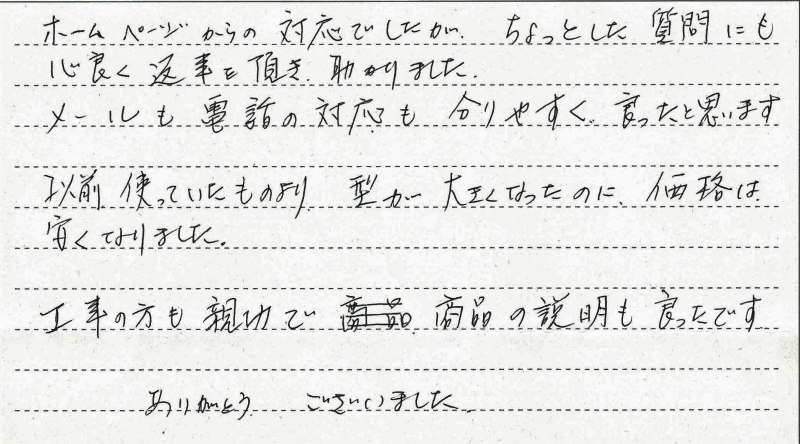 ホームページからの対応でしたが、ちょっとした質問にも
心良く返事を頂き、助かりました。
メールも電話の対応も分りやすく、良ったと思います
以前使っていたものより、型が大きくなったのに、価格は
安くなりました。
工事の方も親切で 商品の説明も良ったです
ありがとう ございました。